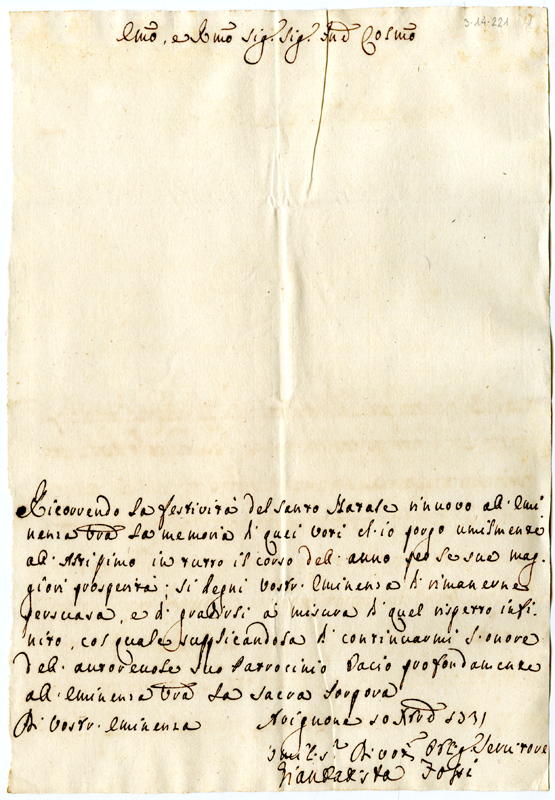 3-14-221
Emo, e Rmo Sigr. Sigr. Prone Colmo
Ricorrendo la festività del Santo Natale rinuovo all'Emi-
nenza Vra la memoria di quei voti ch'io porgo umilmente
all'Altissimo in tutto il corso dell'anno per le sue mag-
giori prosperità; si degni Vostr'Eminenza di rimanerne
persuasa, e di gradirli a misura di quel rispetto infi-
nito, col quale supplicandola di continuarmi l'onore
dell'autorevole suo Patrocinio Bacio profondamente
all'Eminenza Vra la Sacra Porpora
Di Vostr'Eminenza Avignone 10
Umilmo Divotmo Obligmo Servitore